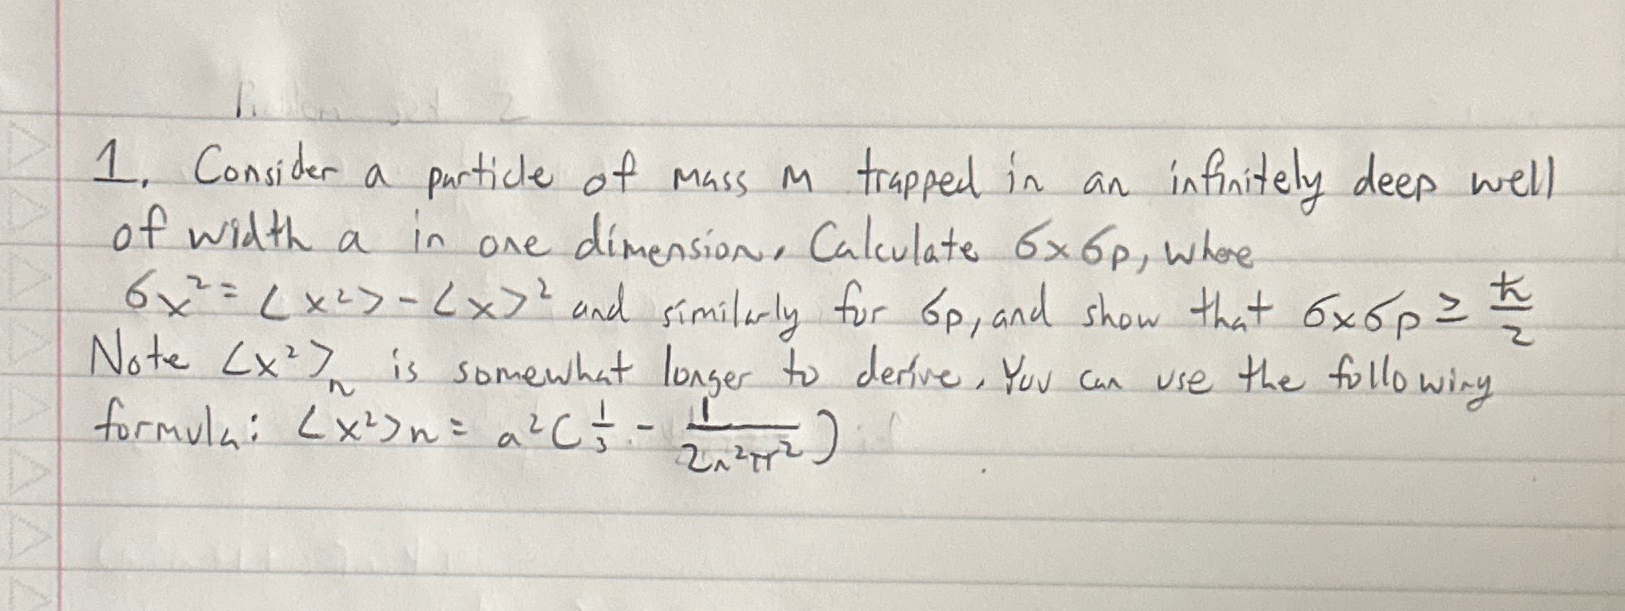 1. Consider a particle of mass m trapped in an infinitely deep well
of width a in one dimension. Calculate σxσp, where
σx² = <x²> - <x>² and similarly for σp, and show that σxσp ≥ ħ/2
Note <x²>n is somewhat longer to derive, You can use the following
formula: <x²>n = a²(1/3 - 1/2n²π²)